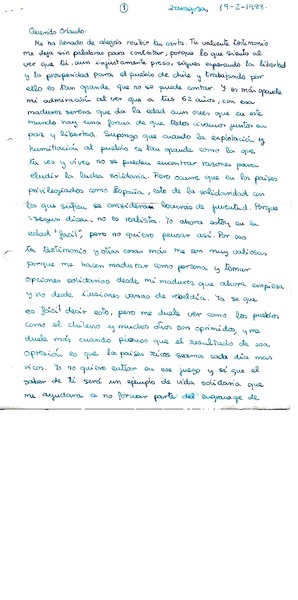 1 Zaragoza 19-2-1988.
Querido Orlando:
Me ha llenado de alegría recibir tu carta. Tu valiente testimonio
me deja sin palabras para contestar, porque lo que siento al
ver que tú, aun injustamente preso, sigues esperando la libertad
y la prosperidad para el pueblo de chile y trabajando por
ello es tan grande que no se puede contar. Y es más grande
mi admiración al ver que a tus 62 años, con esa
madurez serena que da la edad aun crees que en este
mundo hay una forma de que todos vivamos juntos en
paz y libertad. Supongo que cuando la explotación y
humillación al pueblo es tan grande como la que
tu ves y vives no se pueden encontrar razones para
eludir la lucha solidaria. Pero ocurre que en los países
privilegiados como España, esto de la solidaridad con
los que sufren se consideran locuras de juventud. Porque
según dicen, no es realista. Yo ahora estoy en la
edad "fácil", pero no quiero pensar así. Por eso
tu testimonio y otras cosas más me son muy valiosas
porque me hacen madurar como persona y tomar
opciones solidarias desde mi madurez que ahora empieza
y no desde ilusiones vanas de rebeldía. Ya se que
es fácil decir esto, pero me duele ver como los pueblos
como el chileno y muchos otros son oprimidos, y me
duele más cuando pienso que el resultado de esa
opresión es que los países ricos seamos cada día mas
ricos. Yo no quiero entrar en ese juego y sé que el
saber de ti será un ejemplo de vida solidaria que
me ayudara a no formar parte del engranaje de